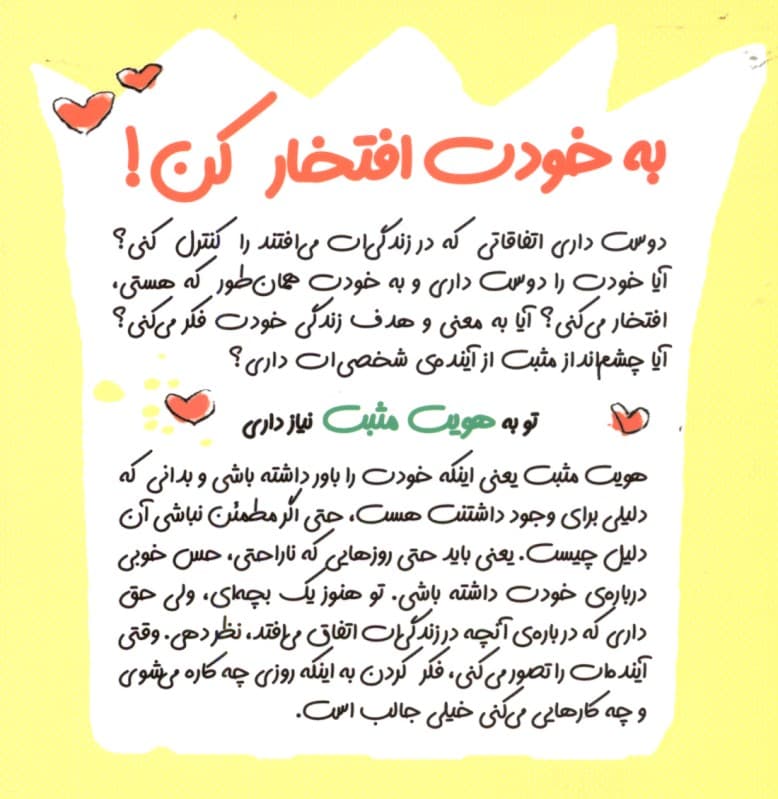 به خودت افتخار کن!
دوست داری اتفاقاتی که در زندگی‌ات می‌افتند را کنترل کنی؟
آیا خودت را دوست داری و به خودت همان‌طور که هستی،
افتخار می‌کنی؟ آیا به معنی و هدف زندگی خودت فکر می‌کنی؟
آیا چشم‌انداز مثبت از آینده‌ی شخصی‌ات داری؟
تو به هویت مثبت نیاز داری
هویت مثبت یعنی اینکه خودت را باور داشته باشی و بدانی که
دلیلی برای وجود داشتنت هست، حتی اگر مطمئن نباشی آن
دلیل چیست. یعنی باید حتی روزهایی که ناراحتی، حس خوبی
درباره‌ی خودت داشته باشی. تو هنوز یک بچه‌ای، ولی حق
داری که درباره‌ی آنچه در زندگی‌ات اتفاق می‌افتد، نظر دهی. وقتی
آینده‌ات را تصور می‌کنی، فکر کردن به اینکه روزی چه کاره می‌شوی
و چه کارهایی می‌کنی خیلی جالب است.